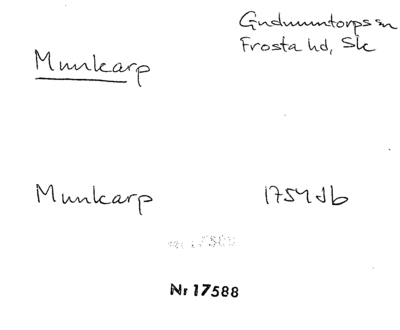 Gudmuntorps sn
Frosta hd, Sk
Munkarp
Munkarp
1754 Jb
Nr 17588